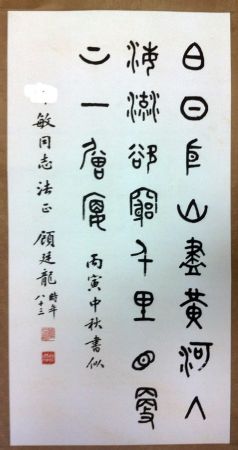 白日依山盡黃河入
海流欲窮千里目更
上一層樓 丙寅中秋書似
敏同志法正 顧廷龍 時年八十三